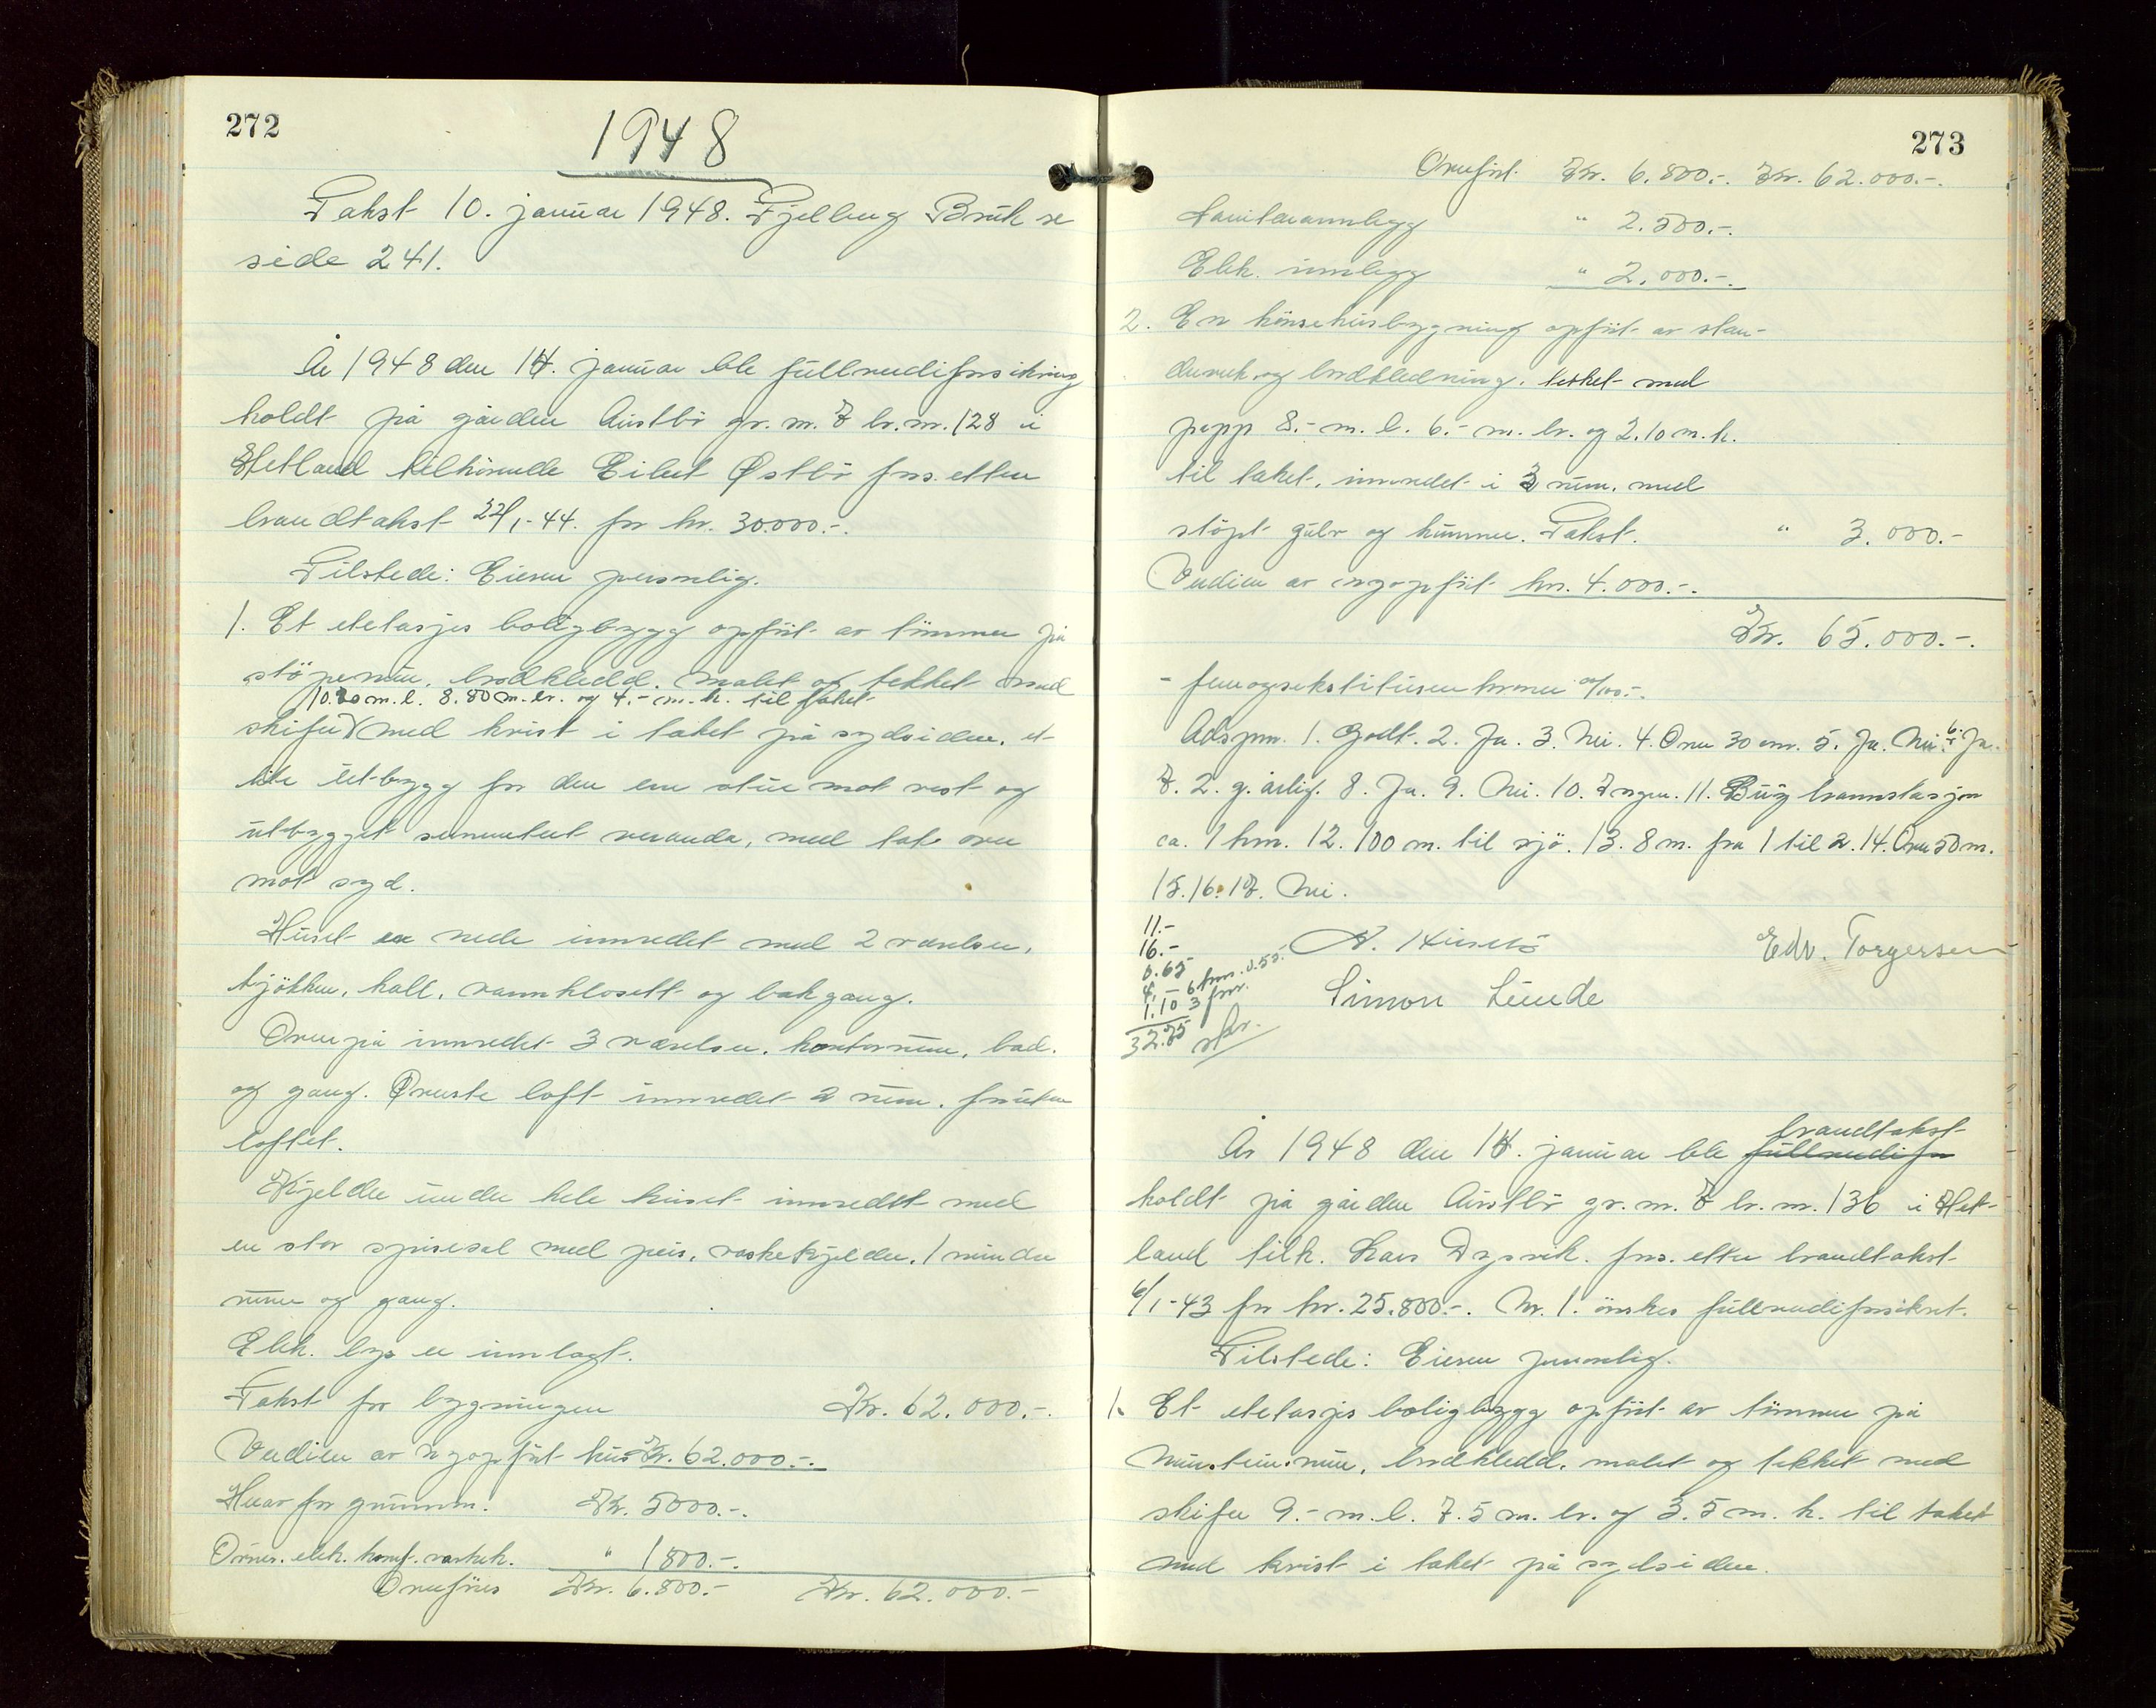 272
1948
Takst 10. januar 1948. Fjelberg Bruk se
side 241.
År 1948 den 14. januar ble fullverdiforsikring
holdt på gården Austbö gr. nr. 7 br. nr. 128 i
Hetland tilhörende Eilert Østbö fors. etter
brandtakst 22/1-44. for kr. 30.000.-.
Tilstede: Eieren personlig.
1. Et etetasjes boligbygg opfört av tömmer på
stöpemur, bordkledd, malet og tekket med
10.20 m. l. 8.80 m. br. og 4.- m. h. til taket
skifer med kvist i taket på sydsiden, et
lite utbygg for den ene stue mot vest og
utbygget sementert veranda, med tak over
mot syd.
Huset er nede innredet med 2 værelser,
kjökken, hall, vannklosett og bakgang.
Ovenpå innredet 3 værelser, kontorrum, bad,
og gang. Øverste loft innredet 2 rum, foruten
loftet.
Kjelder under hele huset innredet med
en stor spisesal med peis, vaskekjelder, 1 mindre
rum og gang.
Elek. lys er innlagt.
Takst for bygningen Kr. 62.000.-.
Verdien av nyopfört hus Kr. 62.000.-.
Herav for grunnm. Kr. 5000.-.
Ovner. elek. komf. vaskek. " 1800.-.
Overföres Kr. 6.800.- Kr. 62.000.-
273
Overfört. Kr. 6.800.-. Kr. 62.000.-.
Sanitæranlegg " 2.500.-.
Elek. innlegg " 2.000.-.
2. En hönsehusbygning opfört av sten-
derverk og bordkledning, tekket med
papp 8.- m. l. 6.- m. br. og 2.10 m. h.
til taket, innredet i 3 rum, med
stöpt gulv og hummer. Takst. " 3.000.-
Verdien av nyopfört kr. 4.000.-.
Kr. 65.000.-.
- femogsekstitusen kroner 00/100.-.
Adspm. 1. Godt. 2. Ja. 3. Nei. 4. Over 30 cm. 5. Ja. Nei. 6. Ja.
7. 2 g. årlig. 8. Ja. 9. Nei. 10. Ingen. 11. Byg brannstasjon
ca. 1 km. 12. 100 m. til sjö. 13. 8 m. fra 1 til 2. 14. Over 50 m.
15. 16. 17. Nei.
11.-
16.-
0.65
4.- 6 km. 0.55.
1.10 3 for.
32.75
N. Husebö Edv. Torgersen
Simon Lunde
brandtakst
År 1948 den 14. januar ble fullverdifor
holdt på gården Austbö gr. nr. 7 br. nr. 136 i Het-
land tilh. Lars Dysvik. fors. etter brandtakst
6/1-43 for kr. 25.800.-. Nr. 1. önskes fullverdiforsikret.
Tilstede: Eieren personlig.
1. Et etetasjes boligbygg opfört av tömmer på
murstensmur, bordkledd, malet og tekket med
skifer 9.- m. l. 7.5 m. br. og 3.5 m. h. til taket
med kvist i taket på sydsiden.